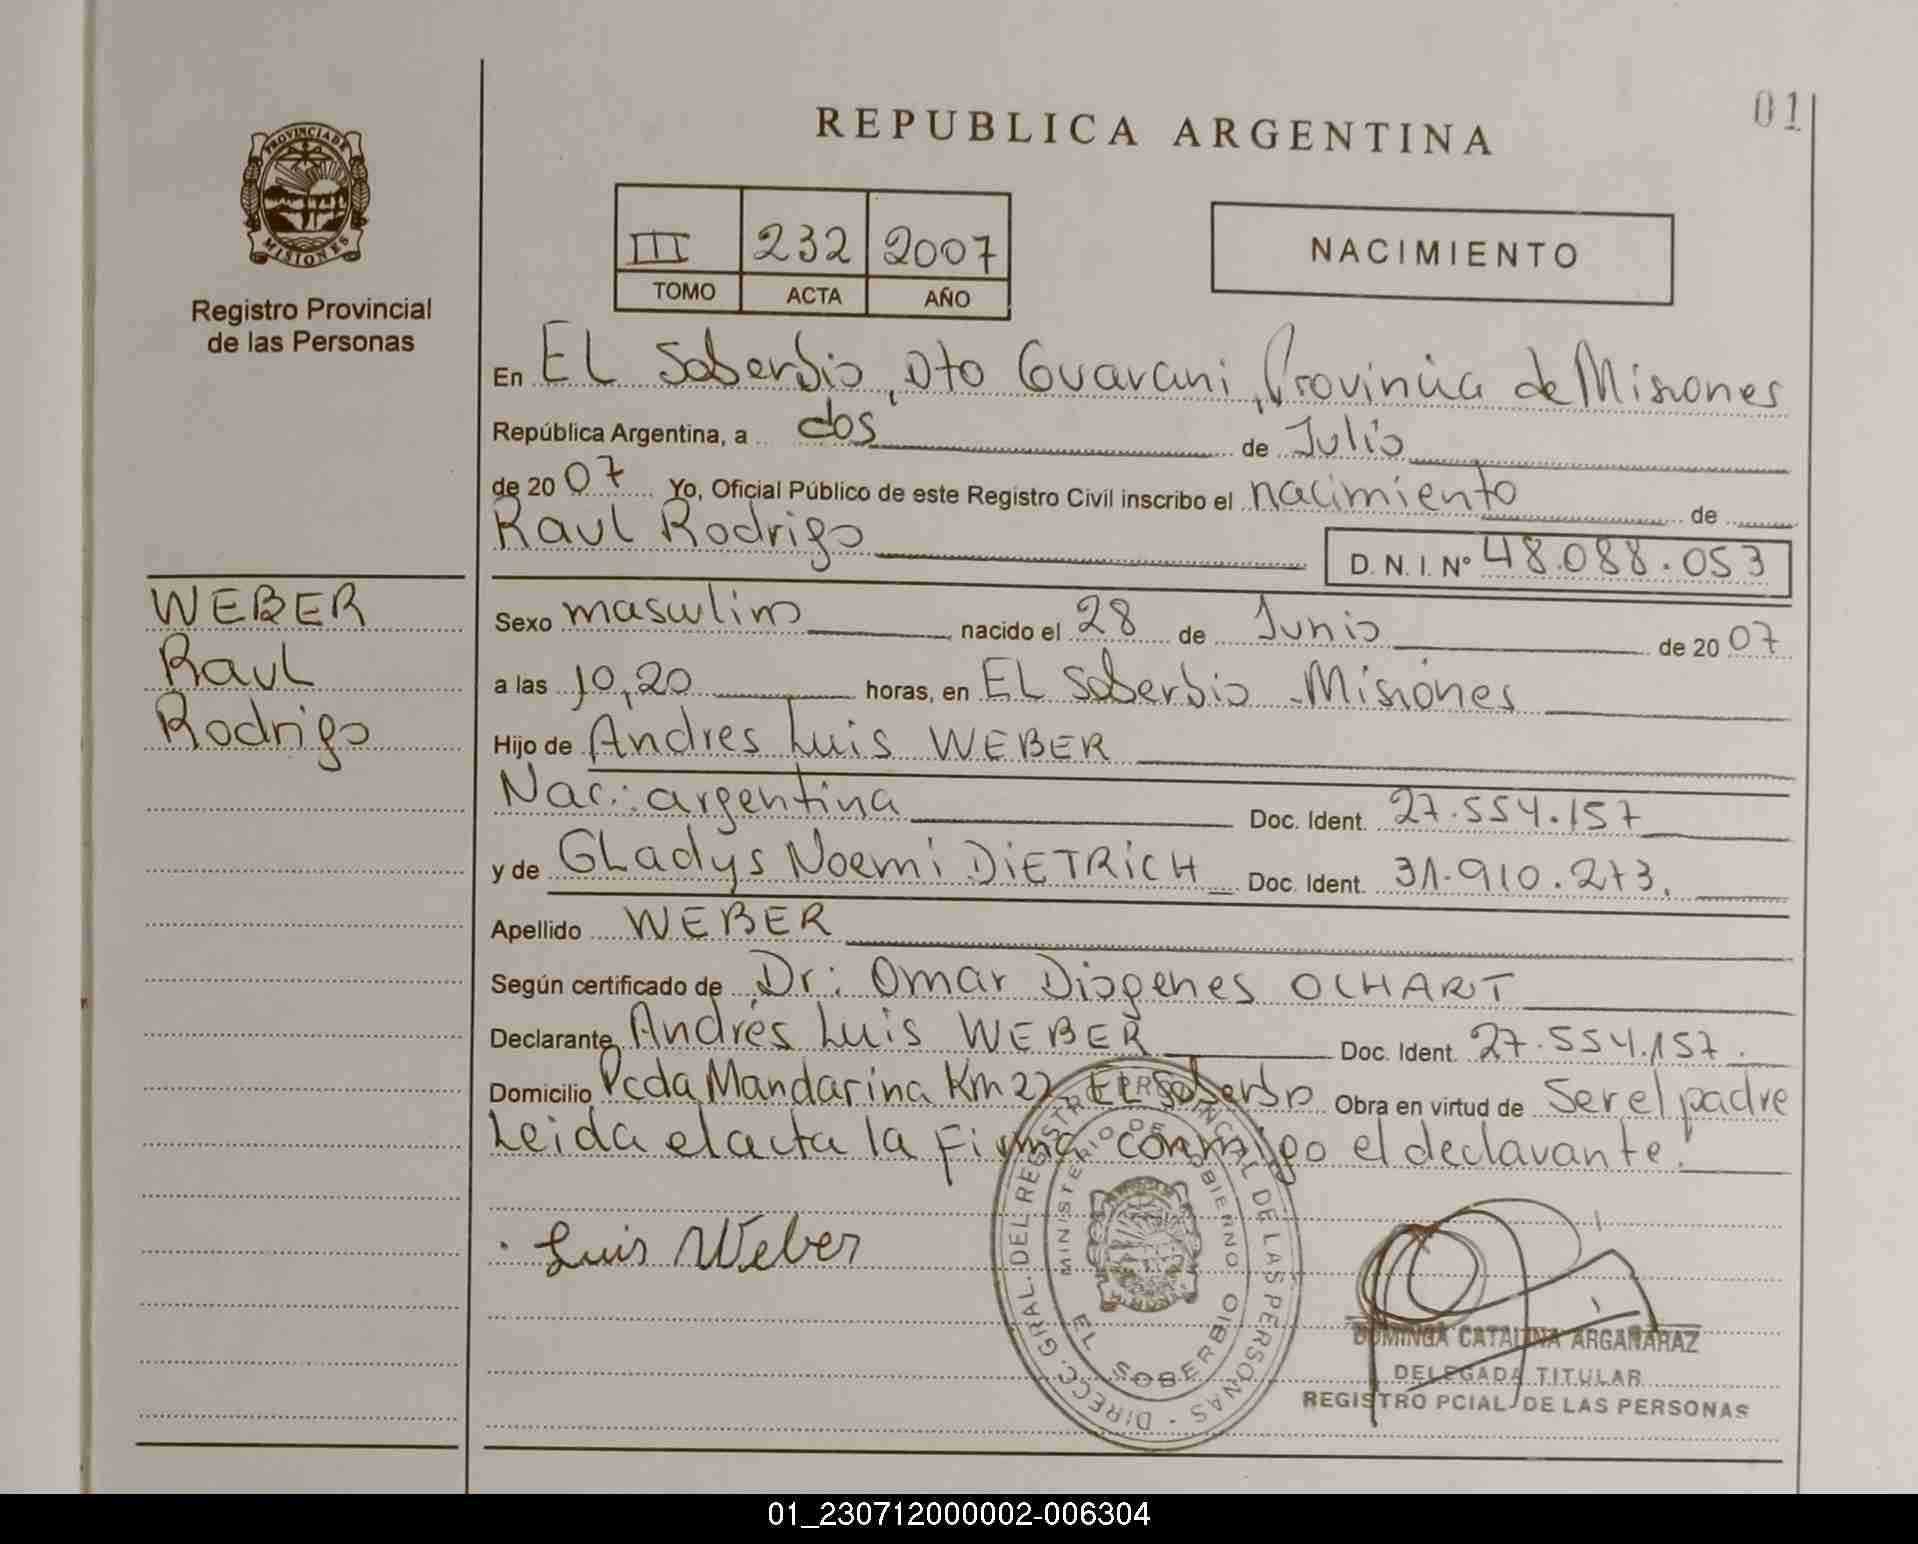 01
REPUBLICA ARGENTINA
PROVINCIA DE
MISIONES
Registro Provincial
de las Personas
III 232 2007
TOMO ACTA AÑO
NACIMIENTO
En EL Soberbio, Dto Guarani, Provincia de Misiones
República Argentina, a dos de Julio
de 2007 Yo, Oficial Público de este Registro Civil inscribo el nacimiento de
Raul Rodrigo
D. N. I. Nº 48.088.053
WEBER
Raul
Rodrigo
Sexo masculino nacido el 28 de Junio de 2007
a las 10,20 horas, en EL Soberbio - Misiones
Hijo de Andres Luis WEBER
Nac.: argentina Doc. Ident. 27.554.157
y de GLadys Noemi DiETRiCH Doc. Ident. 31.910.273.
Apellido WEBER
Según certificado de Dr: Omar Diogenes OLHART
Declarante Andrés Luis WEBER Doc. Ident. 27.554.157.
Domicilio Pcda Mandarina Km 22 EL Soberbio Obra en virtud de Ser el padre
Leida el acta la Firma conmigo el declarante.
Luis Weber
DIRECC. GRAL. DEL REGISTRO PROVINCIAL DE LAS PERSONAS -
MINISTERIO DE GOBIERNO
EL SOBERBIO
DOMINGA CATALINA ARGAÑARAZ
DELEGADA TITULAR
REGISTRO PCIAL DE LAS PERSONAS
01_230712000002-006304